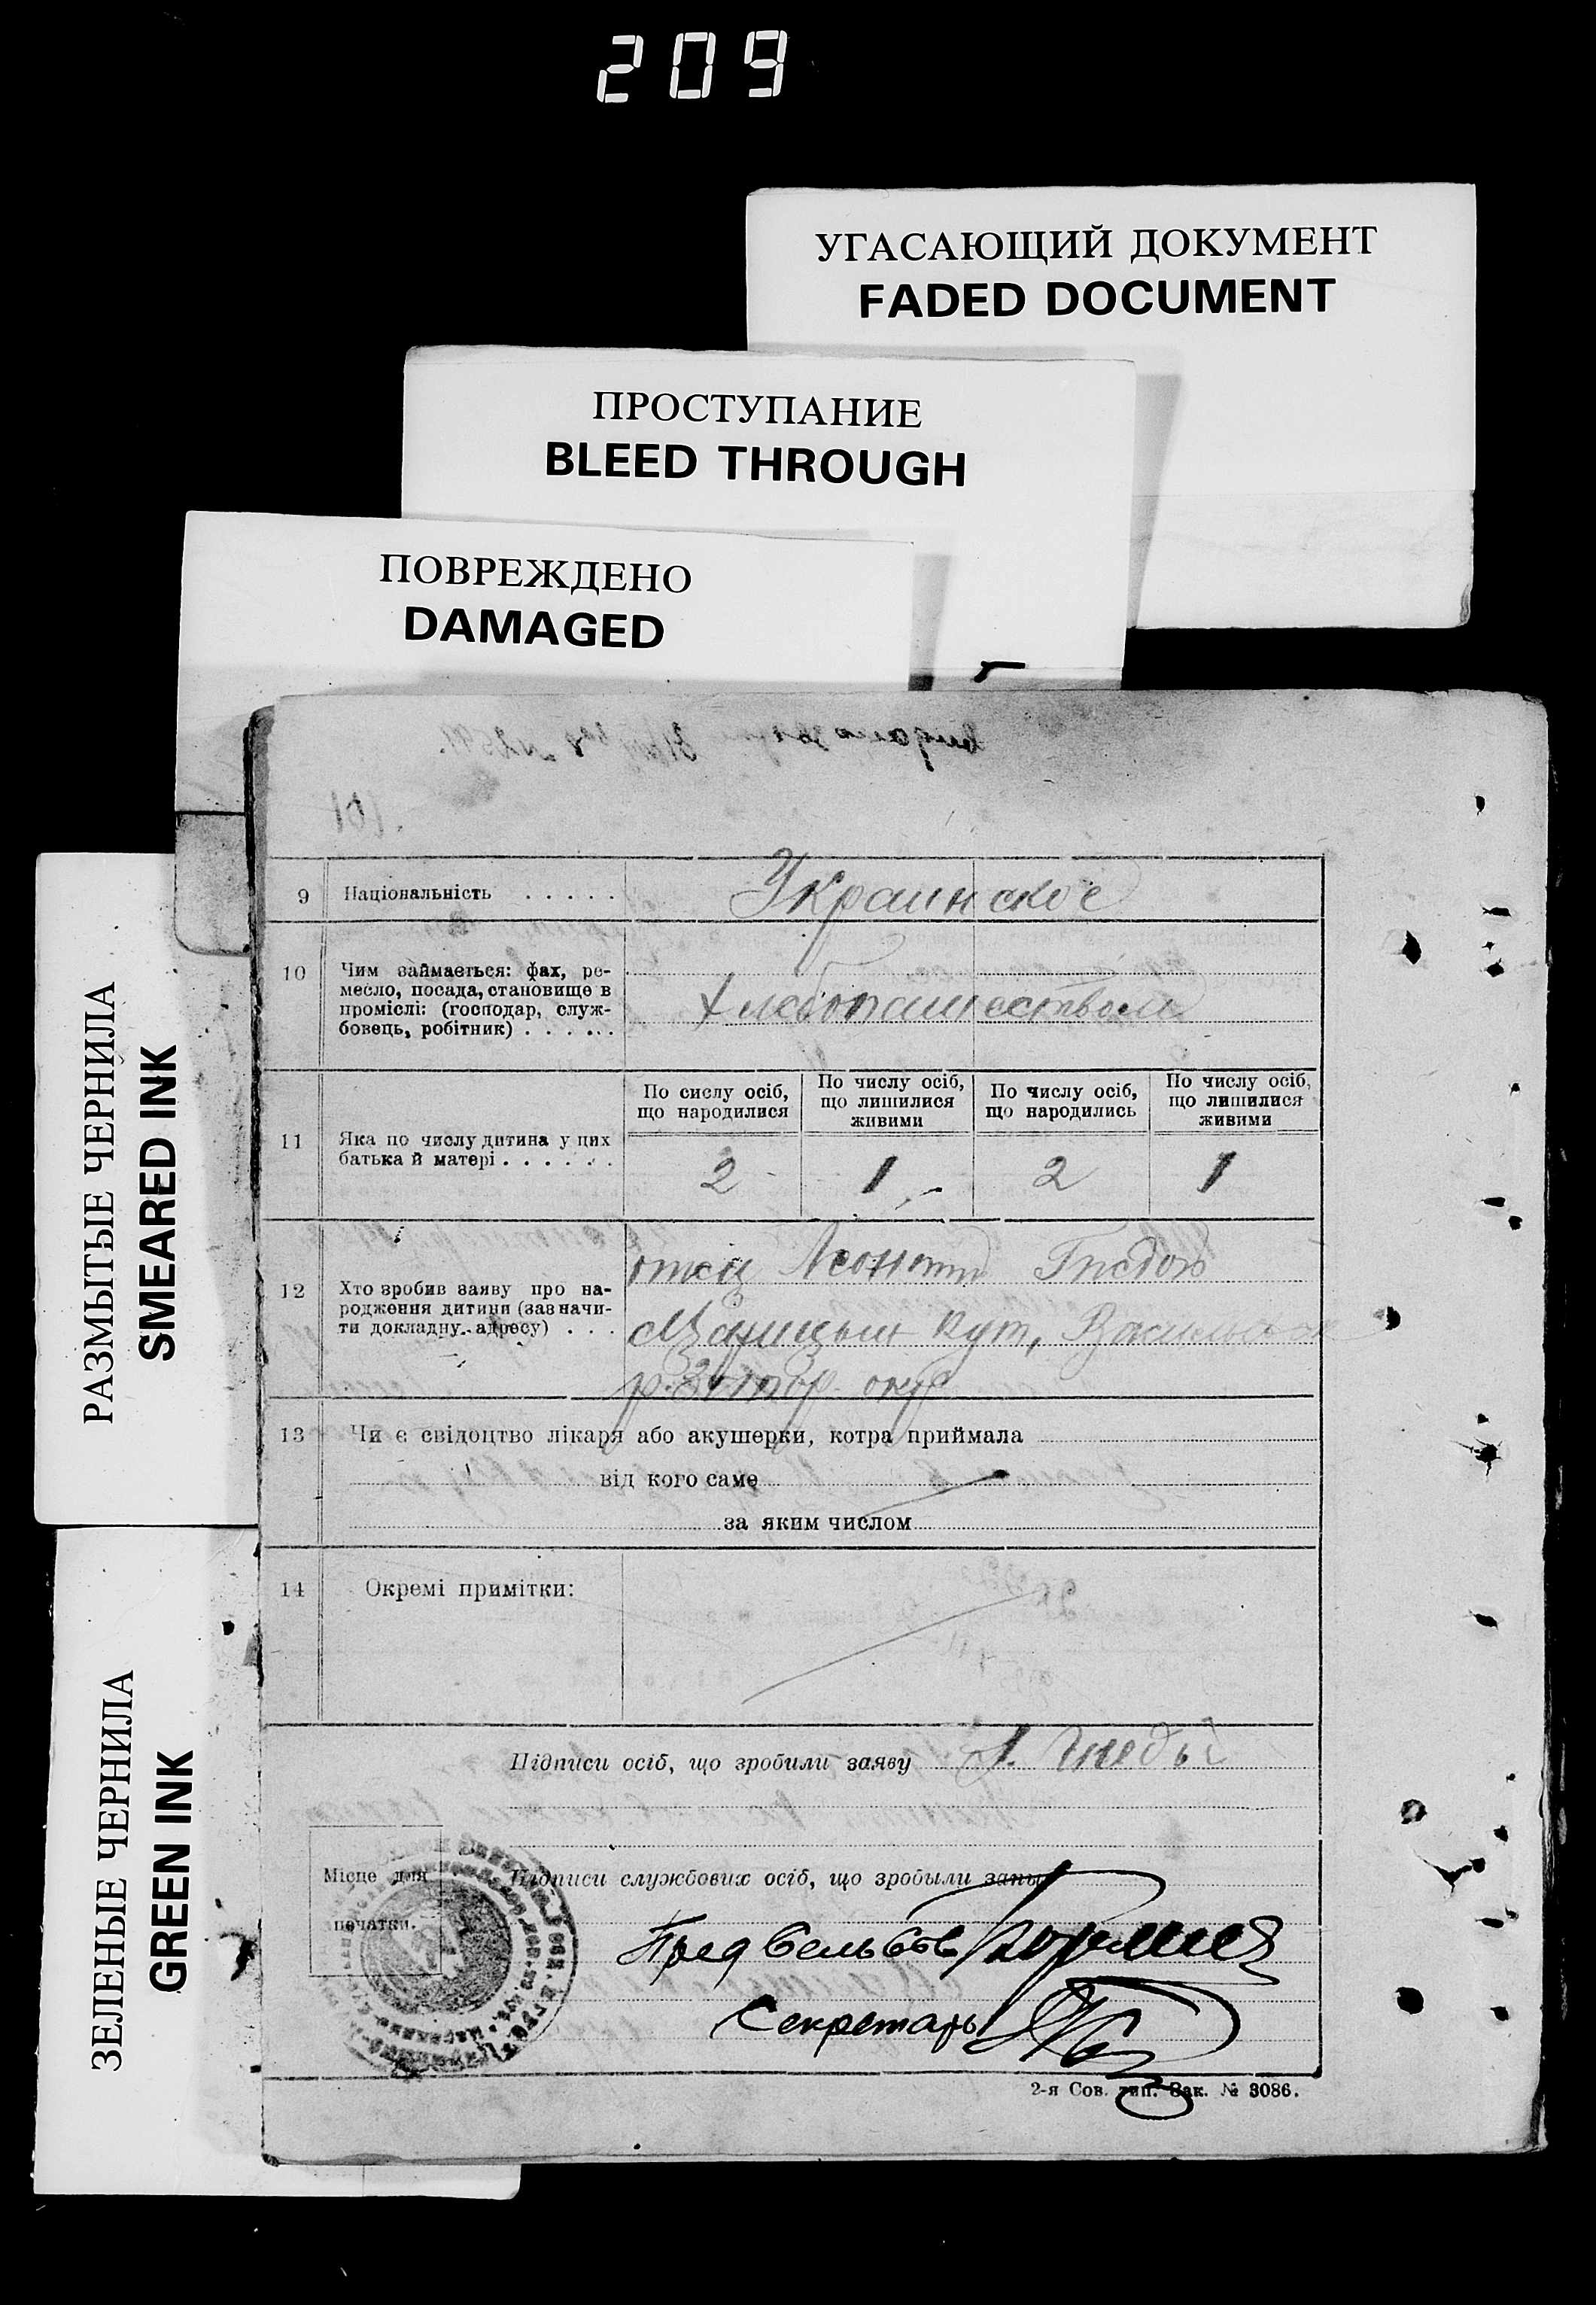 209
УГАСАЮЩИЙ ДОКУМЕНТ
FADED DOCUMENT
ПРОСТУПАНИЕ
BLEED THROUGH
ПОВРЕЖДЕНО
DAMAGED
РАЗМЫТЫЕ ЧЕРНИЛА
SMEARED INK
ЗЕЛЕНЫЕ ЧЕРНИЛА
GREEN INK
9 Національність . . . . . Украинское
10 Чим займається: фах, ре-
месло, посада, становище в
проміслі: (господар, служ-
бовець, робітник) . . . . . .
Хлебопашеством
11 Яка по числу дитина у цих
батька й матері . . . . . .
По сислу осіб,
що народилися
По числу осіб,
що лишилися
живими
По числу осіб,
що народились
По числу осіб,
що лишилися
живими
2 1 2 1
12 Хто зробив заяву про на-
родження дитини (зазначи-
ти докладну адресу) . . .
отец Леонтий
Кут,
р. окр
13 Чи є свідоцтво лікаря або акушерки, котра приймала
від кого саме
за яким числом
14 Окремі примітки:
Підписи осіб, що зробили заяву
Місце для
печатки.
Підписи службових осіб, що зробыли запы
Пред
Секретарь
2-я Сов. тип. Зак. № 3086.